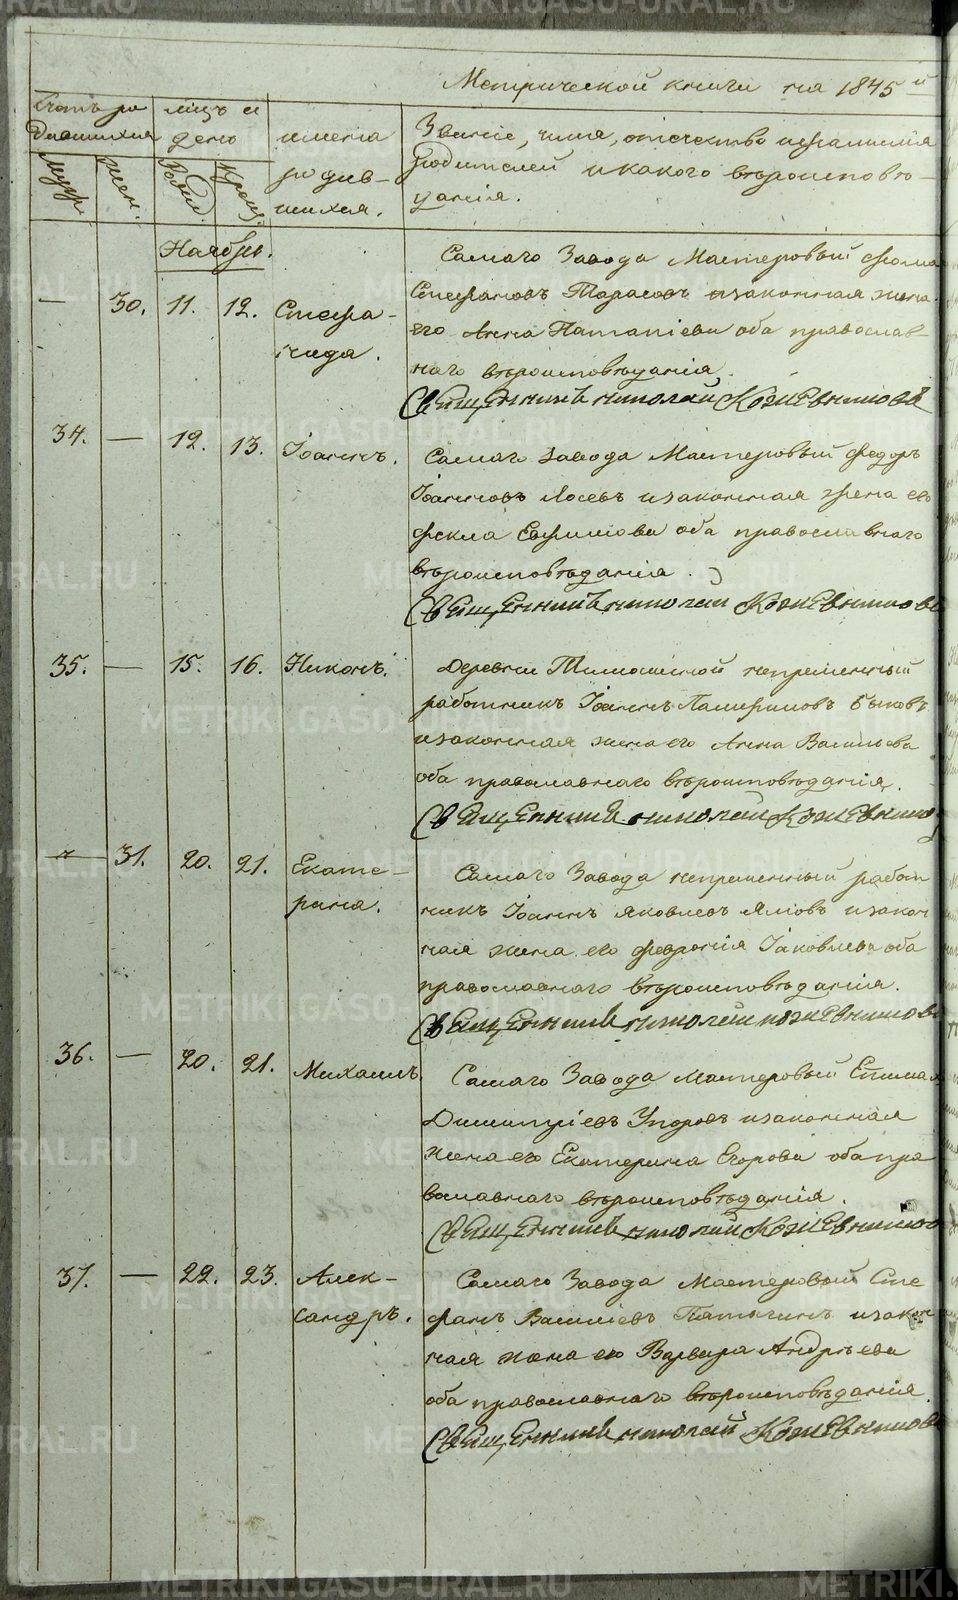 Метрической книги на 1845й
Счетъ ро
дившихся
мѣцъ и
день
имена
родив-
шихся.
Званіе, имя, отечество и фамилія
родителей и какого вѣроисповѣ-
данія.
Муж.
Жен.
Рожд.
Крещ.
Ноябрь.
Самаго Завода Мастеровый Фома
— 30. 11. 12. Стефа- Стефановъ Тарасовъ и законная жена
нида. его Анна Ипатіева оба православ-
наго вѣроисповѣданія.
Священникъ Николай Кожевниковъ
34. — 12. 13. Іоаннъ. Самаго Завода Мастеровый Федоръ
Іоанновъ Лосевъ и законная жена его
Фекла Ефимова оба православнаго
вѣроисповѣданія.
Священникъ Николай Кожевниковъ
35. — 15. 16. Никонъ. Деревни непременный
работникъ Іоаннъ Быковъ
и законная жена его Анна Васильева
оба православнаго вѣроисповѣданія.
Священникъ Николай Кожевнико
— 31. 20. 21. Екате- Самаго Завода непременный работ
рина. никъ Іоаннъ Яковлевъ и закон
ная жена его Февронія Іаковлева оба
православнаго вѣроисповѣданія.
Священникъ Николай Кожевниковъ
36. — 20. 21. Михаилъ. Самаго Завода Мастеровый
Димитріевъ Упоровъ и законная
жена его Екатерина Егорова оба пра
вославнаго вѣроисповѣданія.
Священникъ Николай Кожевников
37. — 22. 23. Алек- Самаго Завода Мастеровый Сте
сандръ. фанъ Василіевъ и закон
ная жена его Варвара Андрѣева
оба православнаго вѣроисповѣданія.
Священникъ Николай Кожевникова
METRIKI.GASO-URAL.RU